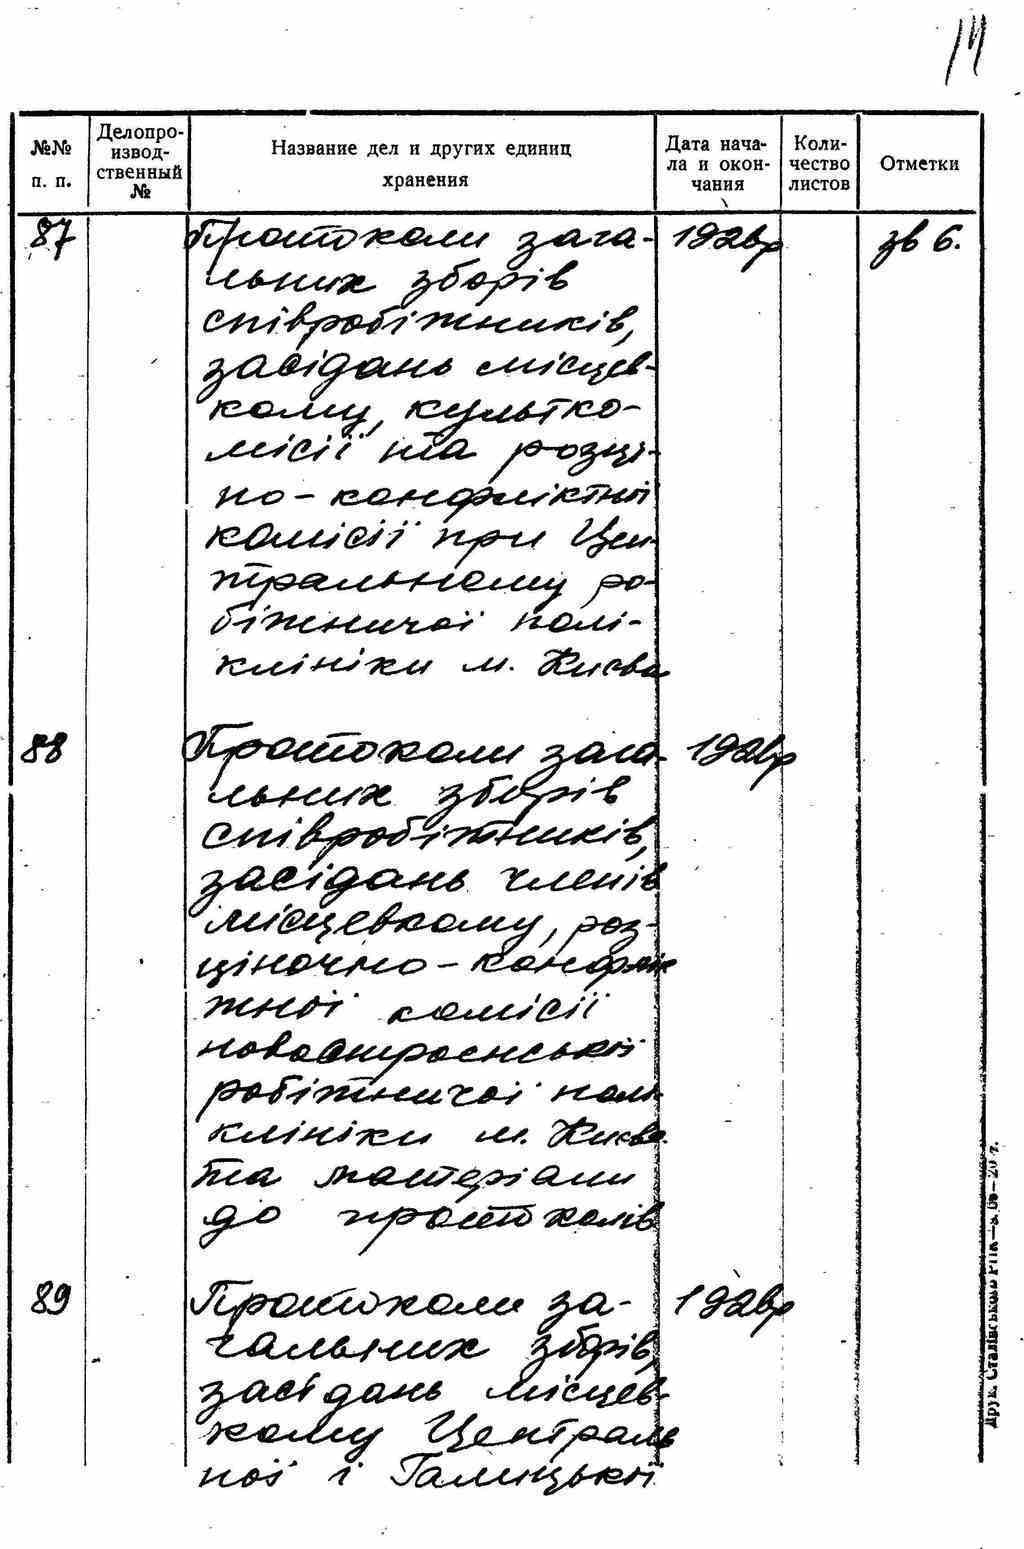 14
№№ п. п.
Делопро-
извод-
ственный
№
Название дел и других единиц
хранения
Дата нача-
ла и окон-
чания
Коли-
чество
листов
Отметки
87 Протоколи зага- 1926р зв 6.
льних зборів
співробітників,
засідань місцев-
кому, культко-
місії та розці-
но-конфліктної
комісії при Цен-
тральному ро-
бітничої полі-
клініки м. Києва
88 Протоколи зага- 1926р
льних зборів
співробітників,
засідань членів
місцевкому, роз-
ціночно-конфлік
тної комісії
новостроєнської
робітничої полі-
клініки м. Києва
та матеріали
до протоколів
89 Протоколи за- 1926р
гальних зборів,
засідань місцев-
кому Централь
ної і Галицької
Друк. Сталівського